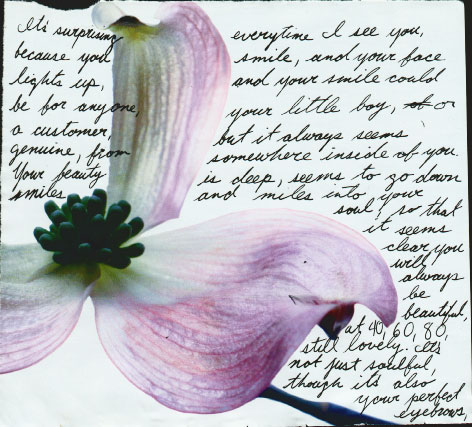 It's surprising everytime I see you,
because you smile, and your face
lights up, and your smile could
be for anyone, your little boy, or
a customer, but it always seems
genuine, from somewhere inside of you.
Your beauty is deep, seems to go down
smiles and miles into your
soul, so that
it seems
clear you
will
always
be
beautiful,
at 40, 60, 80,
still lovely. It's
not just soulful,
though it's also
your perfect
eyebrows,